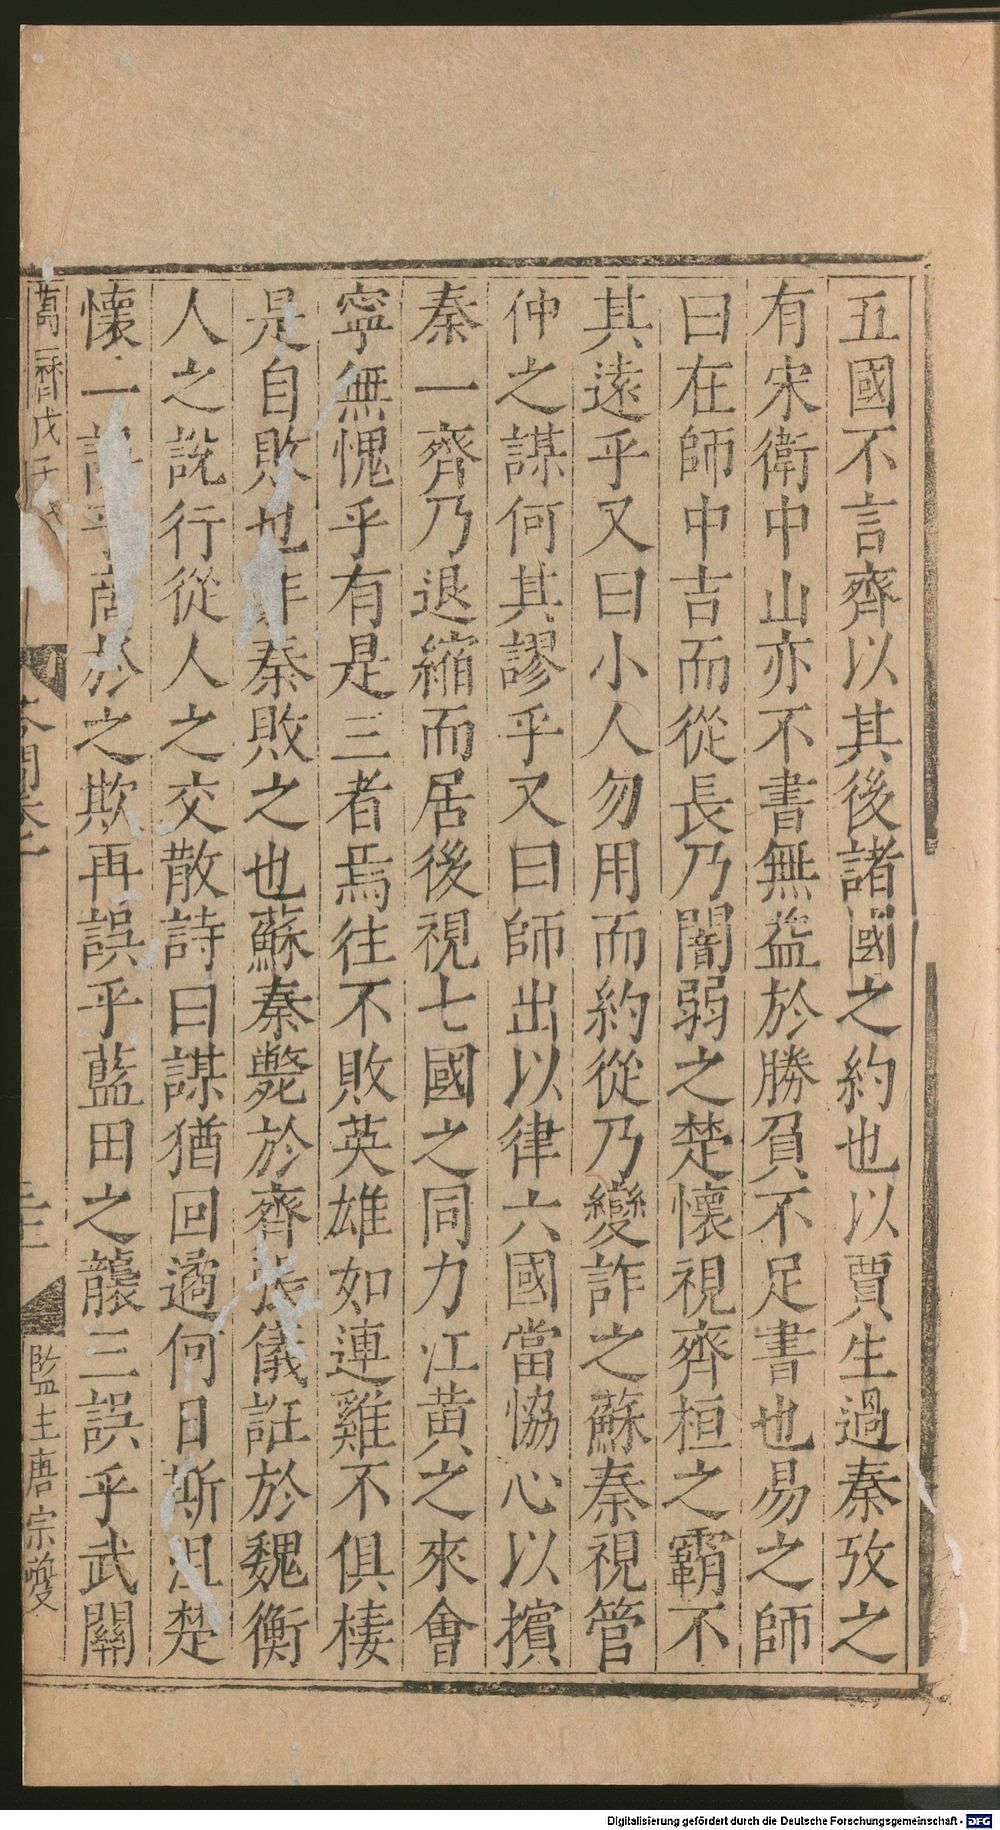 五國不言齊以其後諸國之約也以賈生過秦攷之
有宋衛中山亦不書無益於勝負不足書也易之師
曰在師中吉而從長乃闇弱之楚懷視齊桓之霸不
其遠乎又曰小人勿用而約從乃變詐之蘇秦視管
仲之謀何其謬乎又曰師出以律六國當協心以擯
秦一齊乃退縮而居後視七國之同力江黄之來會
寧無愧乎有是三者焉往不敗英雄如連雞不俱棲
是自敗也非秦敗之也蘇秦斃於齊張儀誑於魏衡
人之說行從人之交散詩曰謀猶回遹何日斯沮楚
懷一誤乎商於之欺再誤乎藍田之襲三誤乎武關
萬曆戊子
答問卷二
監生唐宗夔
Digitalisierung gefördert durch die Deutsche Forschungsgemeinschaft - DFG